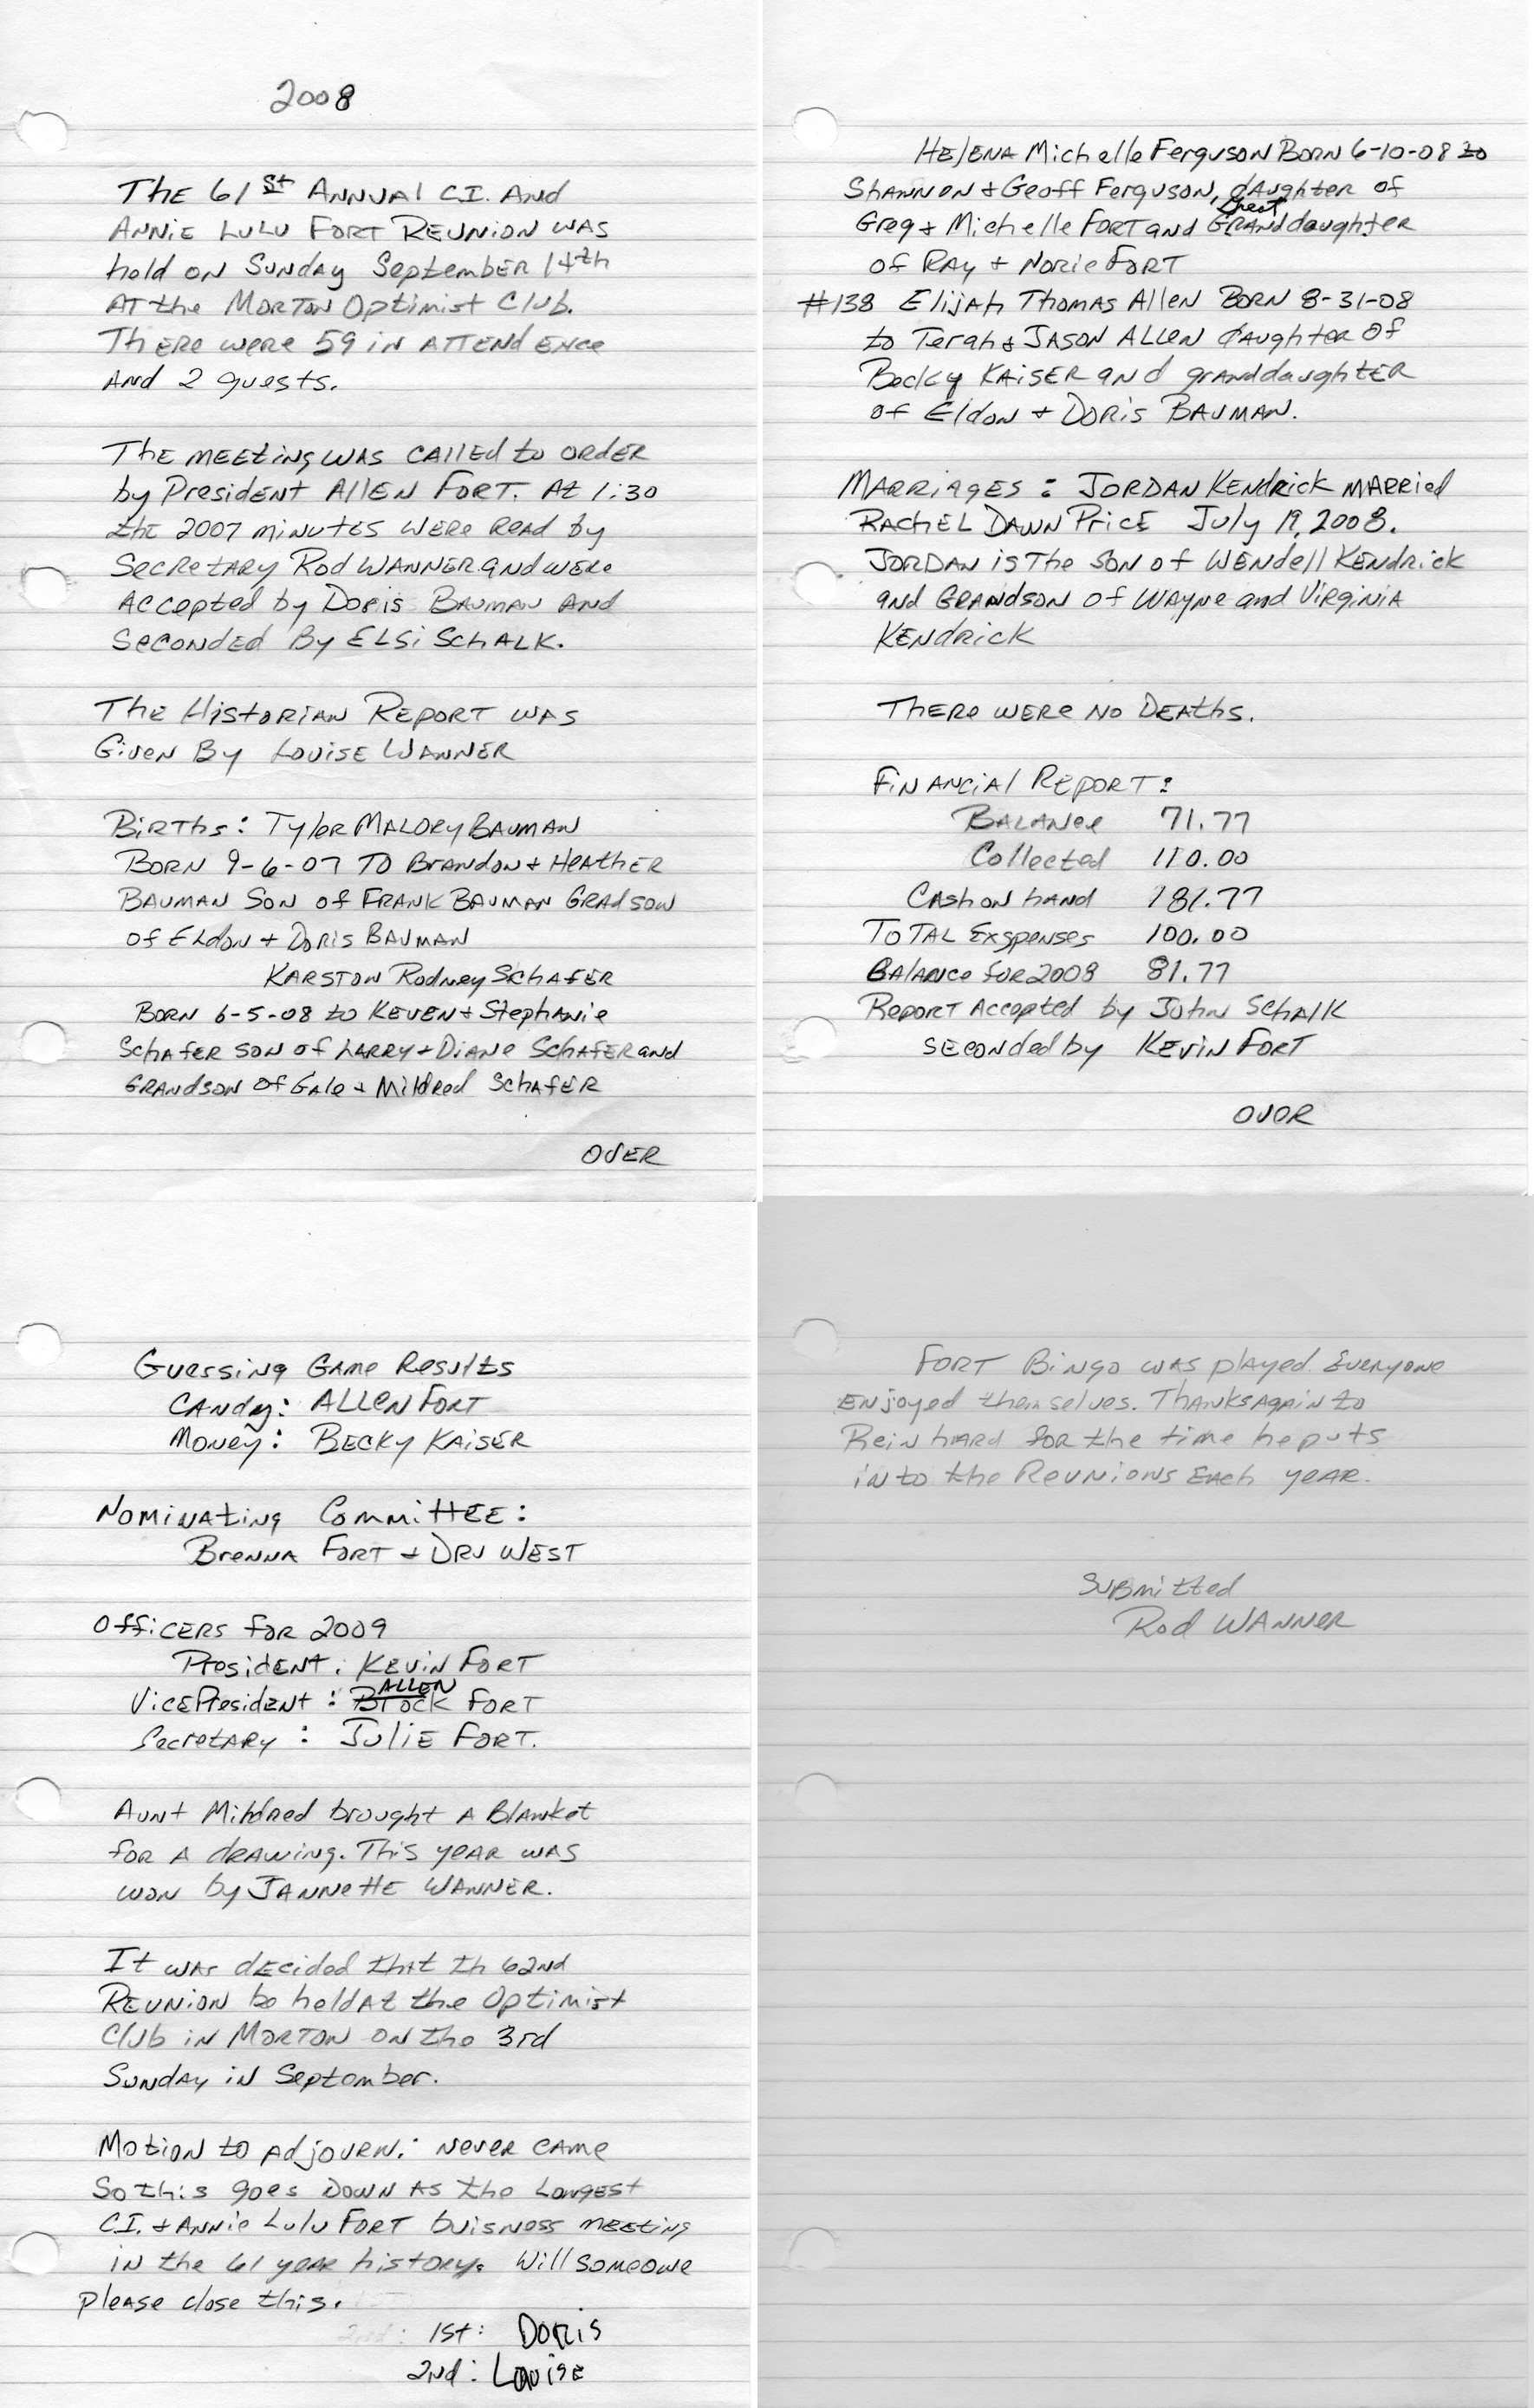 2008
The 61st Annual C.I. And
Annie Lulu Fort Reunion was
hold on Sunday September 14th
At the Morton Optimist Club.
There were 59 in attendence
and 2 guests.
The meeting was called to order
by President Allen Fort. At 1:30
the 2007 minutes were read by
Secretary Rod Wanner and were
accepted by Doris Bauman and
seconded By Elsi Schalk.
The Historian Report was
Given By Louise Wanner
Births: Tyler Malory Bauman
Born 9-6-07 to Brandon & Heather
Bauman Son of Frank Bauman Gradson
of Eldon & Doris Bauman
Karston Rodney Schafer
Born 6-5-08 to Keven & Stephanie
Schafer son of Larry & Diane Schafer and
Grandson of Gale & Mildred Schafer
OVER
Helena Michelle Ferguson Born 6-10-08 to
Shannon & Geoff Ferguson, daughter of
Greg & Michelle Fort and Great Granddaughter
of Ray & Norie Fort
#138 Elijah Thomas Allen Born 8-31-08
to Terah & Jason Allen daughter of
Becky Kaiser and granddaughter
of Eldon & Doris Bauman.
Marriages: Jordan Kendrick married
Rachel Dawn Price July 19, 2008.
Jordan is the son of Wendell Kendrick
and Grandson of Wayne and Virginia
Kendrick
There were no Deaths.
Financial Report:
Balance 71.77
Collected 110.00
Cash on hand 181.77
Total Exspenses 100.00
Balance for 2008 81.77
Report Accepted by John Schalk
seconded by Kevin Fort
OVOR
Guessing Game Results
Candy: Allen Fort
Money: Becky Kaiser
Nominating Committee:
Brenna Fort & Dru West
Officers for 2009
President. Kevin Fort
Vice President: Brock ALLEN Fort
Secretary: Julie Fort.
Aunt Mildred brought a Blanket
for a drawing. This year was
won by Jannette Wanner.
It was decided that th 62nd
Reunion be held at the Optimist
Club in Morton on the 3rd
Sunday in September.
Motion to adjourn: never came
So this goes down as the Longest
C.I. & Annie Lulu Fort buisness meeting
in the 61 year history. Will someone
please close this.
1st: Doris
2nd: Louise
Fort Bingo was played. Everyone
enjoyed themselves. Thanks again to
Reinhard for the time he puts
into the Reunions each year.
Submitted
Rod Wanner